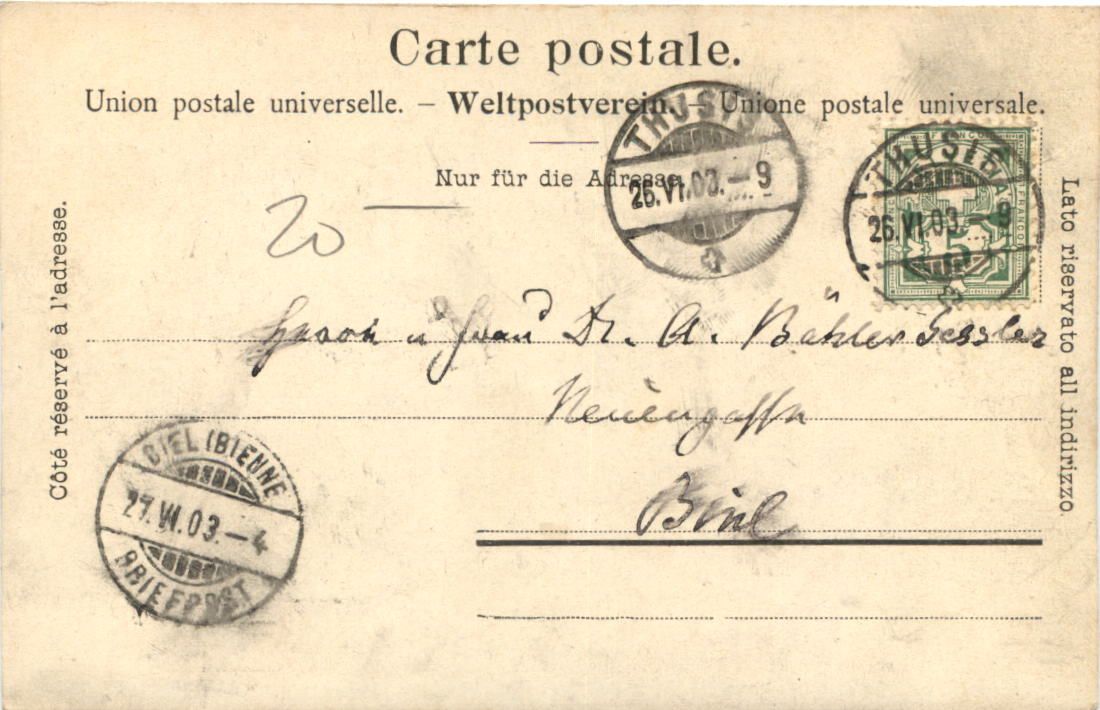 Carte postale.
Union postale universelle. – Weltpostverein. – Unione postale universale.
Nur für die Adresse.
Côté réservé à l'adresse.
Lato riservato all indirizzo.
THUSIS
26.VI.03.–9
THUSIS
26.VI.03.–9
FRANCO
5
20
Herrn u Frau Dr. A. Bähler Gessler
Neuengasse
Biel
BIEL (BIENNE)
27.VI.03.–4
BRIEFPOST